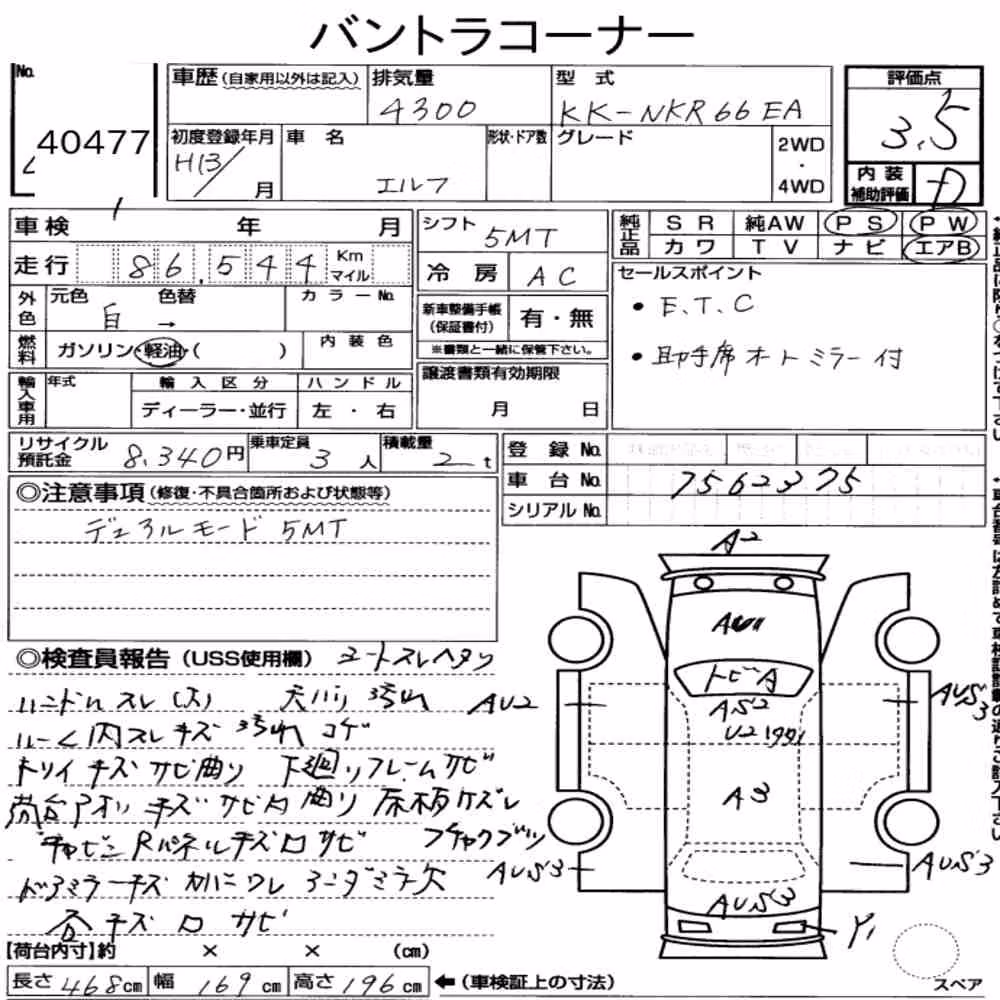 バントラコーナー
No. 40477
車歴(自家用以外は記入) 排気量 4300 型式 KK-NKR66EA 評価点 3.5
初度登録年月 H13/ 月 車名 エルフ 形状・ドア数 グレード 2WD・4WD 内装補助評価 D
車検 年 月 シフト 5MT 純正品 SR 純AW PS PW
カワ TV ナビ エアB
走行 86,544 Km マイル 冷房 AC セールスポイント
外色 元色 白 → 色替 カラーNo. 新車整備手帳(保証書付) 有・無 ・E.T.C
燃料 ガソリン・軽油・( ) 内装色 ※書類と一緒に保管下さい。 ・助手席オートミラー付
輸入車用 年式 輸入区分 ハンドル 譲渡書類有効期限
ディーラー・並行 左・右 月 日
リサイクル預託金 8,340円 乗車定員 3人 積載量 2t 登録No.
車台No. 7562375
シリアルNo.
◎注意事項(修復・不具合箇所および状態等)
デュアルモード 5MT
◎検査員報告(USS使用欄) シートスレヘタリ
ハンドルスレ(大) 天バリ汚れ
ルーム内スレキズ 汚れ コゲ
トリイ キズ サビ曲り 下廻りフレームサビ
荷台アオリ キズ サビ 凹 曲り 床板ケズレ
キャビンRパネルキズ凹サビ フチャクブツ
ドアミラーキズ カバーワレ アンダミラー欠
各キズ凹サビ
A2
AU1
トビA
AS2
U2
AU2
AUS3
A3
AUS3
AUS3
AUS3
Y1
スペア
【荷台内寸】約 × × (cm)
長さ 468cm 幅 169cm 高さ 196cm ←(車検証上の寸法)